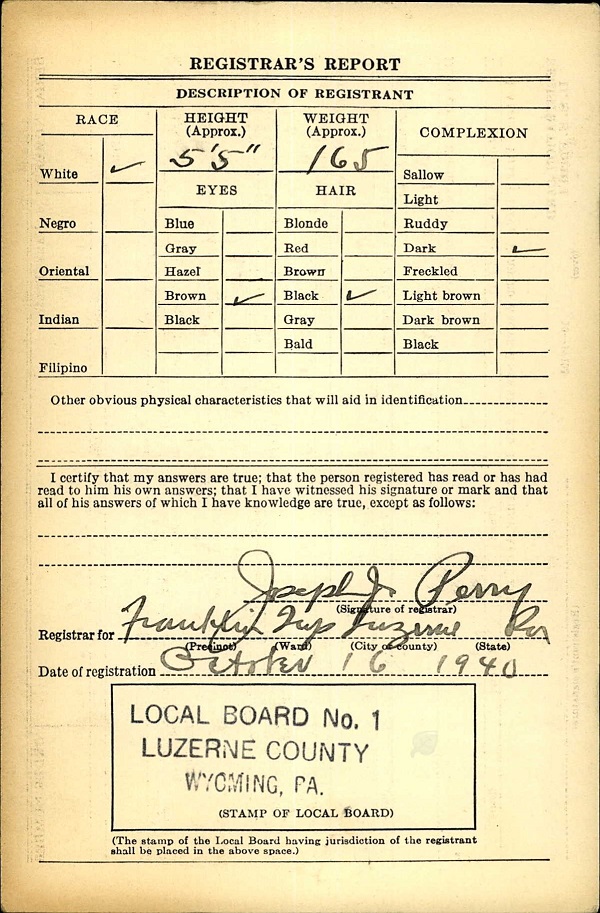 REGISTRAR'S REPORT
DESCRIPTION OF REGISTRANT
RACE
HEIGHT (Approx.)
WEIGHT (Approx.)
COMPLEXION
5'5"
165
White ✓
EYES
HAIR
Sallow
Light
Negro
Blue
Blonde
Ruddy
Gray
Red
Dark ✓
Oriental
Hazel
Brown
Freckled
Brown ✓
Black ✓
Light brown
Indian
Black
Gray
Dark brown
Bald
Black
Filipino
Other obvious physical characteristics that will aid in identification
I certify that my answers are true; that the person registered has read or has had
read to him his own answers; that I have witnessed his signature or mark and that
all of his answers of which I have knowledge are true, except as follows:
Joseph J. Perry
(Signature of registrar)
Registrar for Franklin Twp Luzerne
(Precinct) (Ward) (City or county) (State)
Date of registration October 16 1940
LOCAL BOARD No. 1
LUZERNE COUNTY
WYOMING, PA.
(STAMP OF LOCAL BOARD)
(The stamp of the Local Board having jurisdiction of the registrant
shall be placed in the above space.)